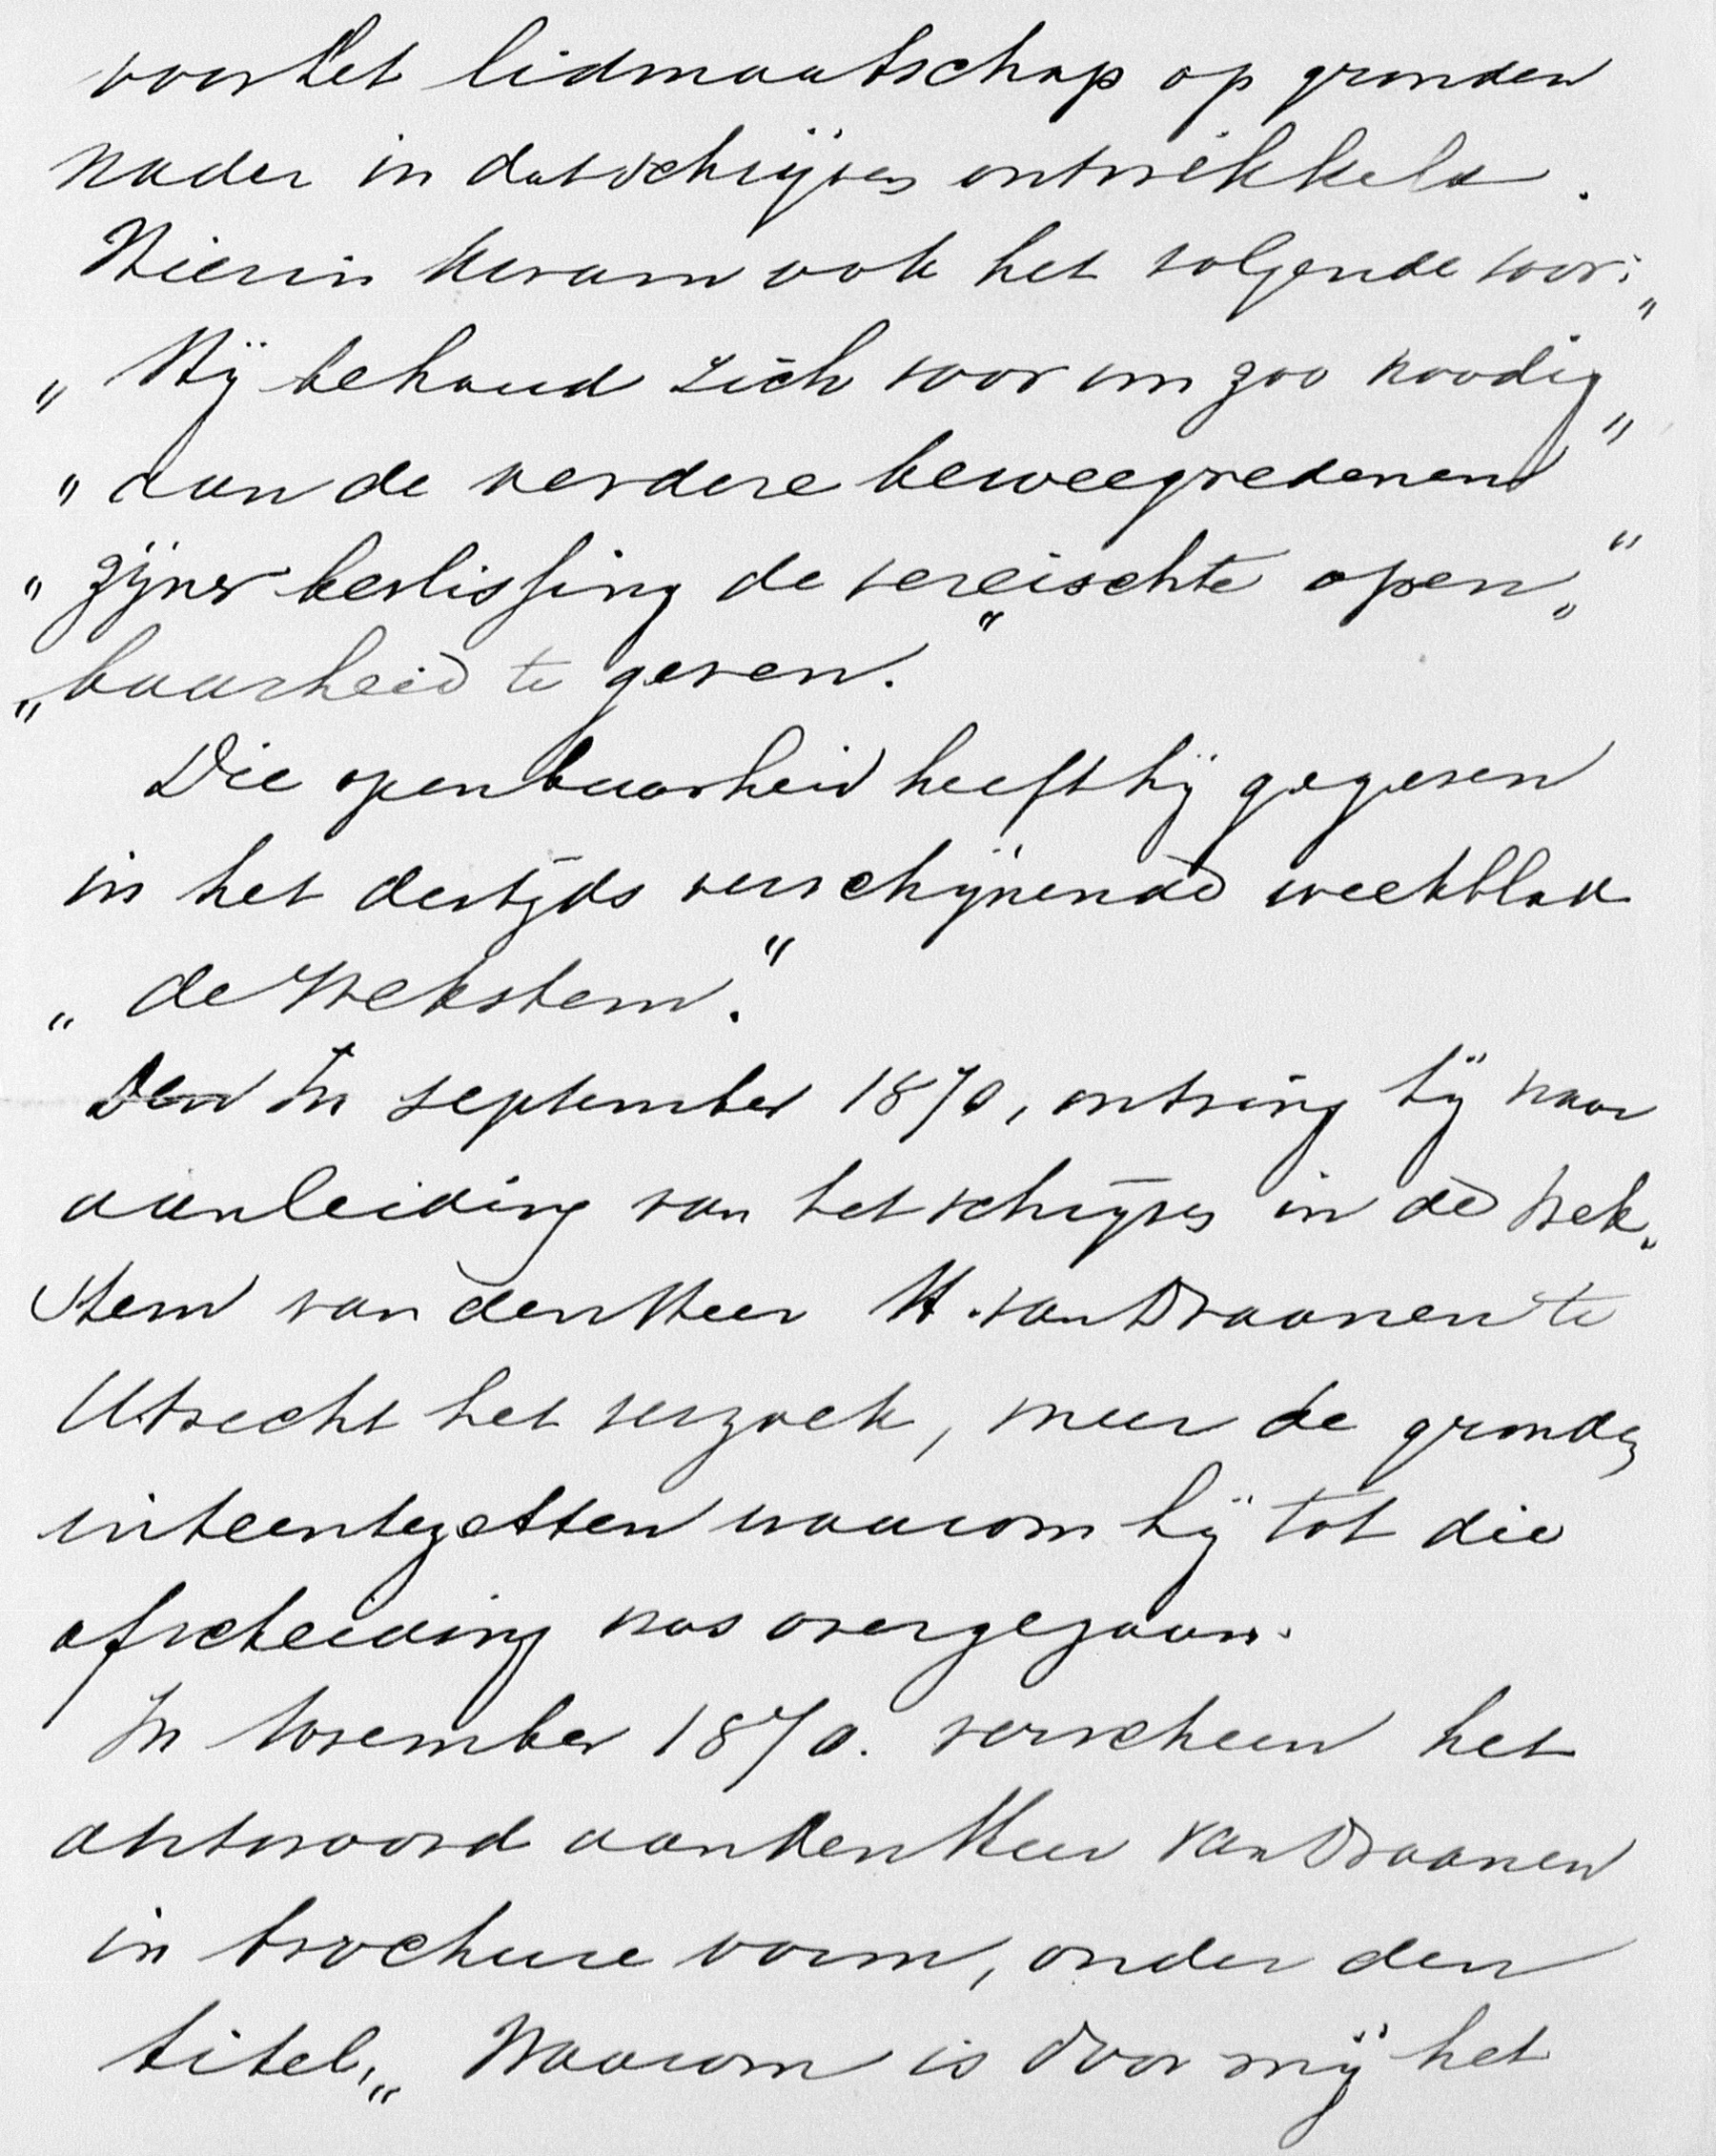 voor het lidmaatschap op gronden
nader in dat schrijven ontwikkeld.
Hierin kwam ook het volgende voor: "
" Hij behoud zich voor om zoo noodig "
" aan de verdere beweegredenen "
" zijner beslissing de vereischte open "
" baarheid te geven. "
Die openbaarheid heeft hij gegeven
in het destijds verschijnend weekblad
„ de Wekstem. "
Den In september 1870, ontving hij naar
aanleiding van het schrijven in de Wek„
stem van den Heer H. van Draanen te
Utrecht het verzoek, meer de gronden
uiteentezetten waarom hij tot die
afscheiding was overgegaan.
In November 1870. verscheen het
antwoord aan den Heer van Draanen
in brochure vorm, onder den
titel, „ Waarom is door mij het